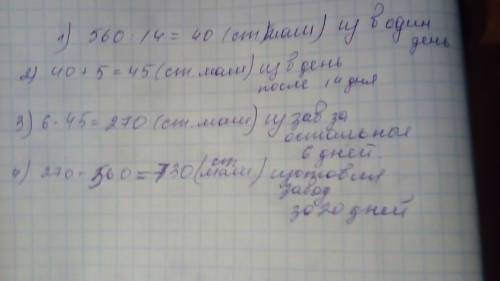 1) 560 : 14 = 40 (ст.маш) из в один
день
2) 40 + 5 = 45 (ст.маш) из в день
после 14 дня
3) 6 · 45 = 270 (ст.маш) из зав за
остальное
6 дней.
4) 270 - 560 = 730 (ст маш) изготовил
завод
за 20 дней